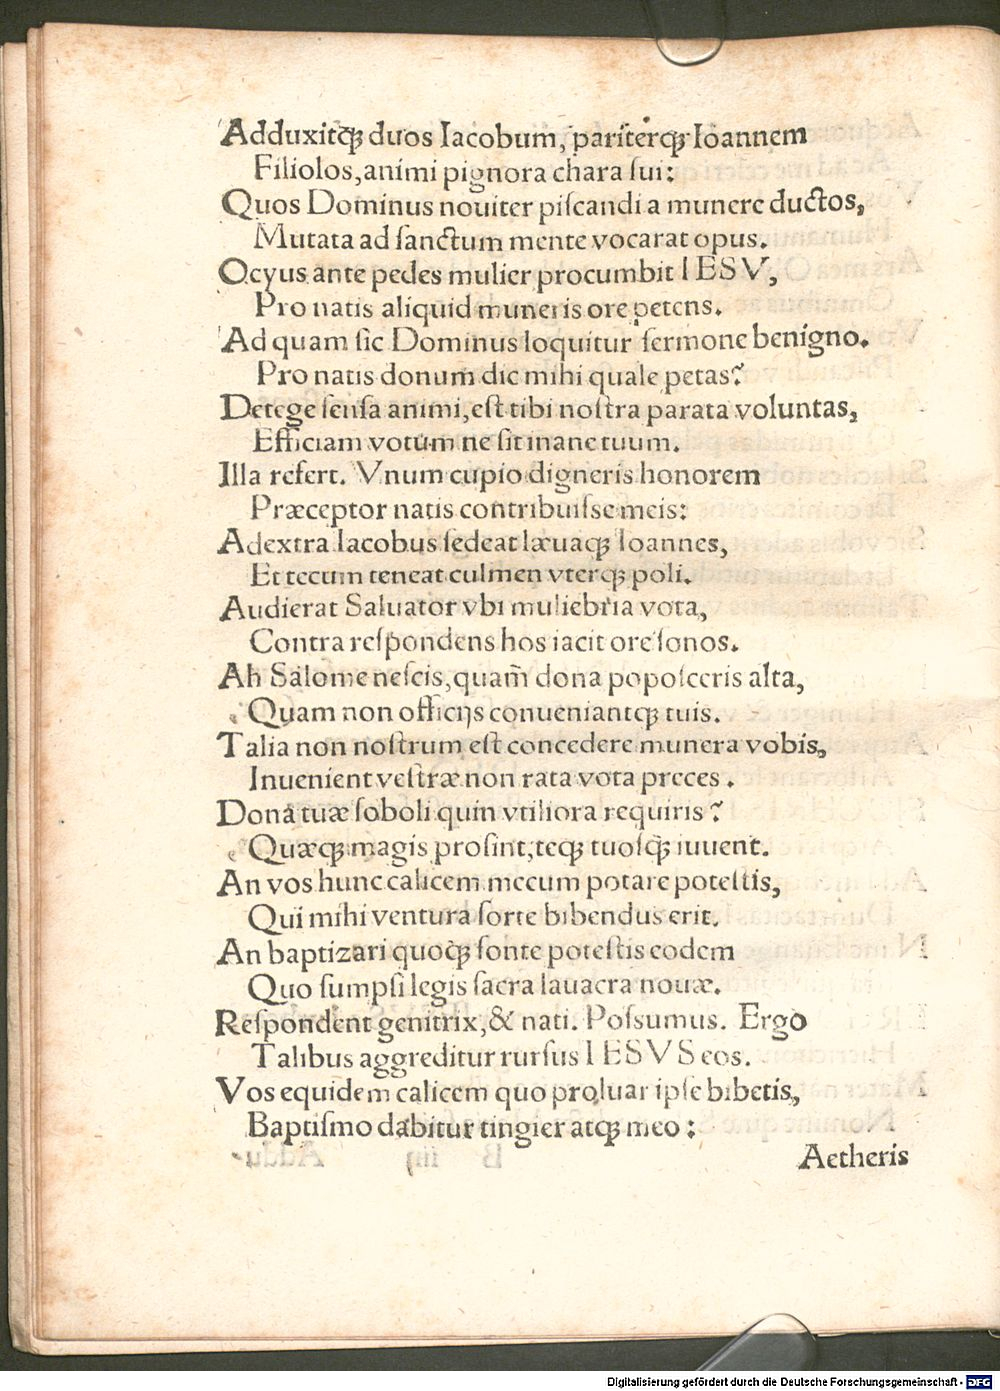 Adduxitqꝫ duos Iacobum, pariterqꝫ Ioannem
Filiolos, animi pignora chara ſui:
Quos Dominus nouiter piſcandi a munere ductos,
Mutata ad ſanctum mente vocarat opus.
Ocyus ante pedes mulier procumbit IESV,
Pro natis aliquid muneris ore petens.
Ad quam ſic Dominus loquitur ſermone benigno.
Pro natis donum dic mihi quale petas?
Detege ſenſa animi, eſt tibi noſtra parata voluntas,
Efficiam votum ne ſit inane tuum.
Illa refert. Vnum cupio digneris honorem
Præceptor natis contribuiſſe meis:
Adextra Iacobus ſedeat læuaqꝫ Ioannes,
Et tecum teneat culmen vterqꝫ poli.
Audierat Saluator vbi muliebria vota,
Contra reſpondens hos iacit ore ſonos.
Ah Salome neſcis, quam̃ dona popoſceris alta,
Quam non officijs conueniantqꝫ tuis.
Talia non noſtrum eſt concedere munera vobis,
Inuenient veſtræ non rata vota preces.
Dona tuæ ſoboli quin vtiliora requiris?
Quæqꝫ magis proſint, teqꝫ tuoſqꝫ iuuent.
An vos hunc calicem mecum potare poteſtis,
Qui mihi ventura ſorte bibendus erit.
An baptizari quoqꝫ fonte poteſtis eodem
Quo ſumpſi legis ſacra lauacra nouæ.
Reſpondent genitrix, & nati. Poſſumus. Ergo
Talibus aggreditur rurſus IESVS eos.
Vos equidem calicem quo proluar ipſe bibetis,
Baptiſmo dabitur tingier atqꝫ meo:
Aetheris
Digitalisierung gefördert durch die Deutsche Forschungsgemeinschaft - DFG